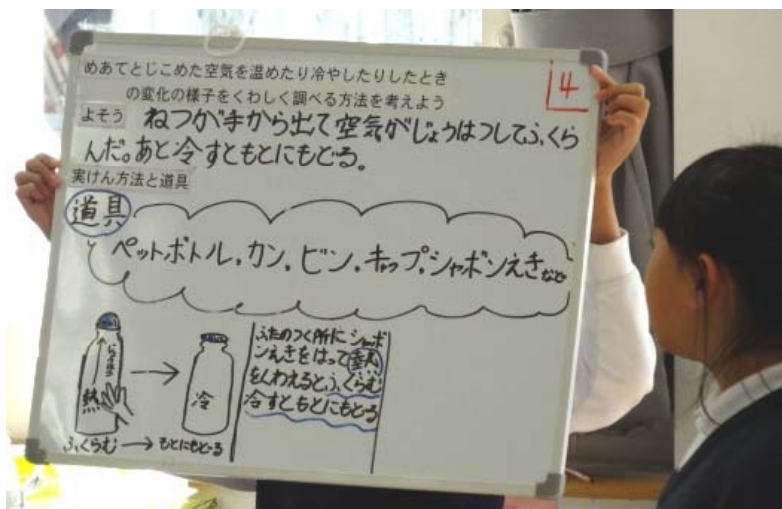 めあてとじこめた空気を温めたり冷やしたりしたとき
の変化の様子をくわしく調べる方法を考えよう
4
よそう ねつが手から出て空気がじょうはつしてふくら
んだ。あと冷すともとにもどる。
実けん方法と道具
道具
ペットボトル。カン。ビン。キャップ。シャボンえきなど
熱
冷
ふくらむ→もとにもどる
ふたのつく所にシャボ
ンえきをはって熱
をくわえると、ふくらむ
冷すともとにもどる